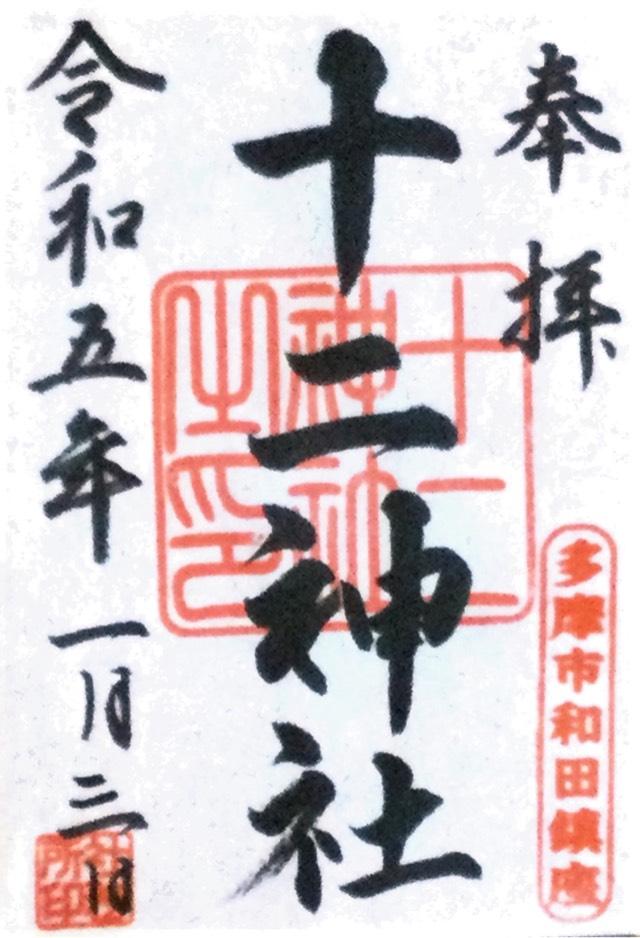 奉拝
多摩市和田鎮座
十二神社
十二神社之印
令和五年一月三日
社務所印